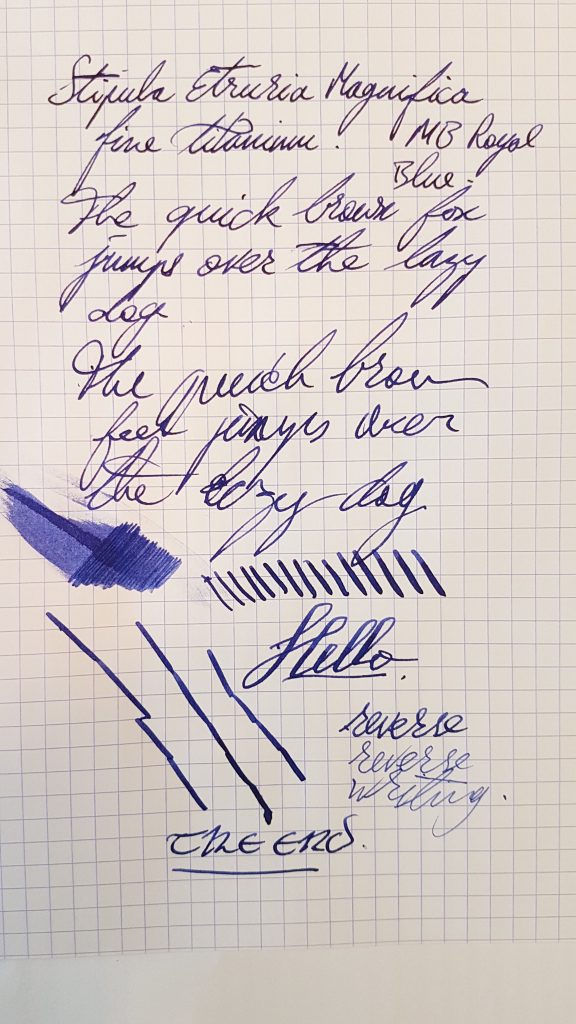 Stipula Etruria Magnifica
fine titanium. MB Royal
Blue.
The quick brown fox
jumps over the lazy
dog
The quick brown
fox jumps over
the lazy dog
Hello.
reverse
reverse
writing.
THE END.